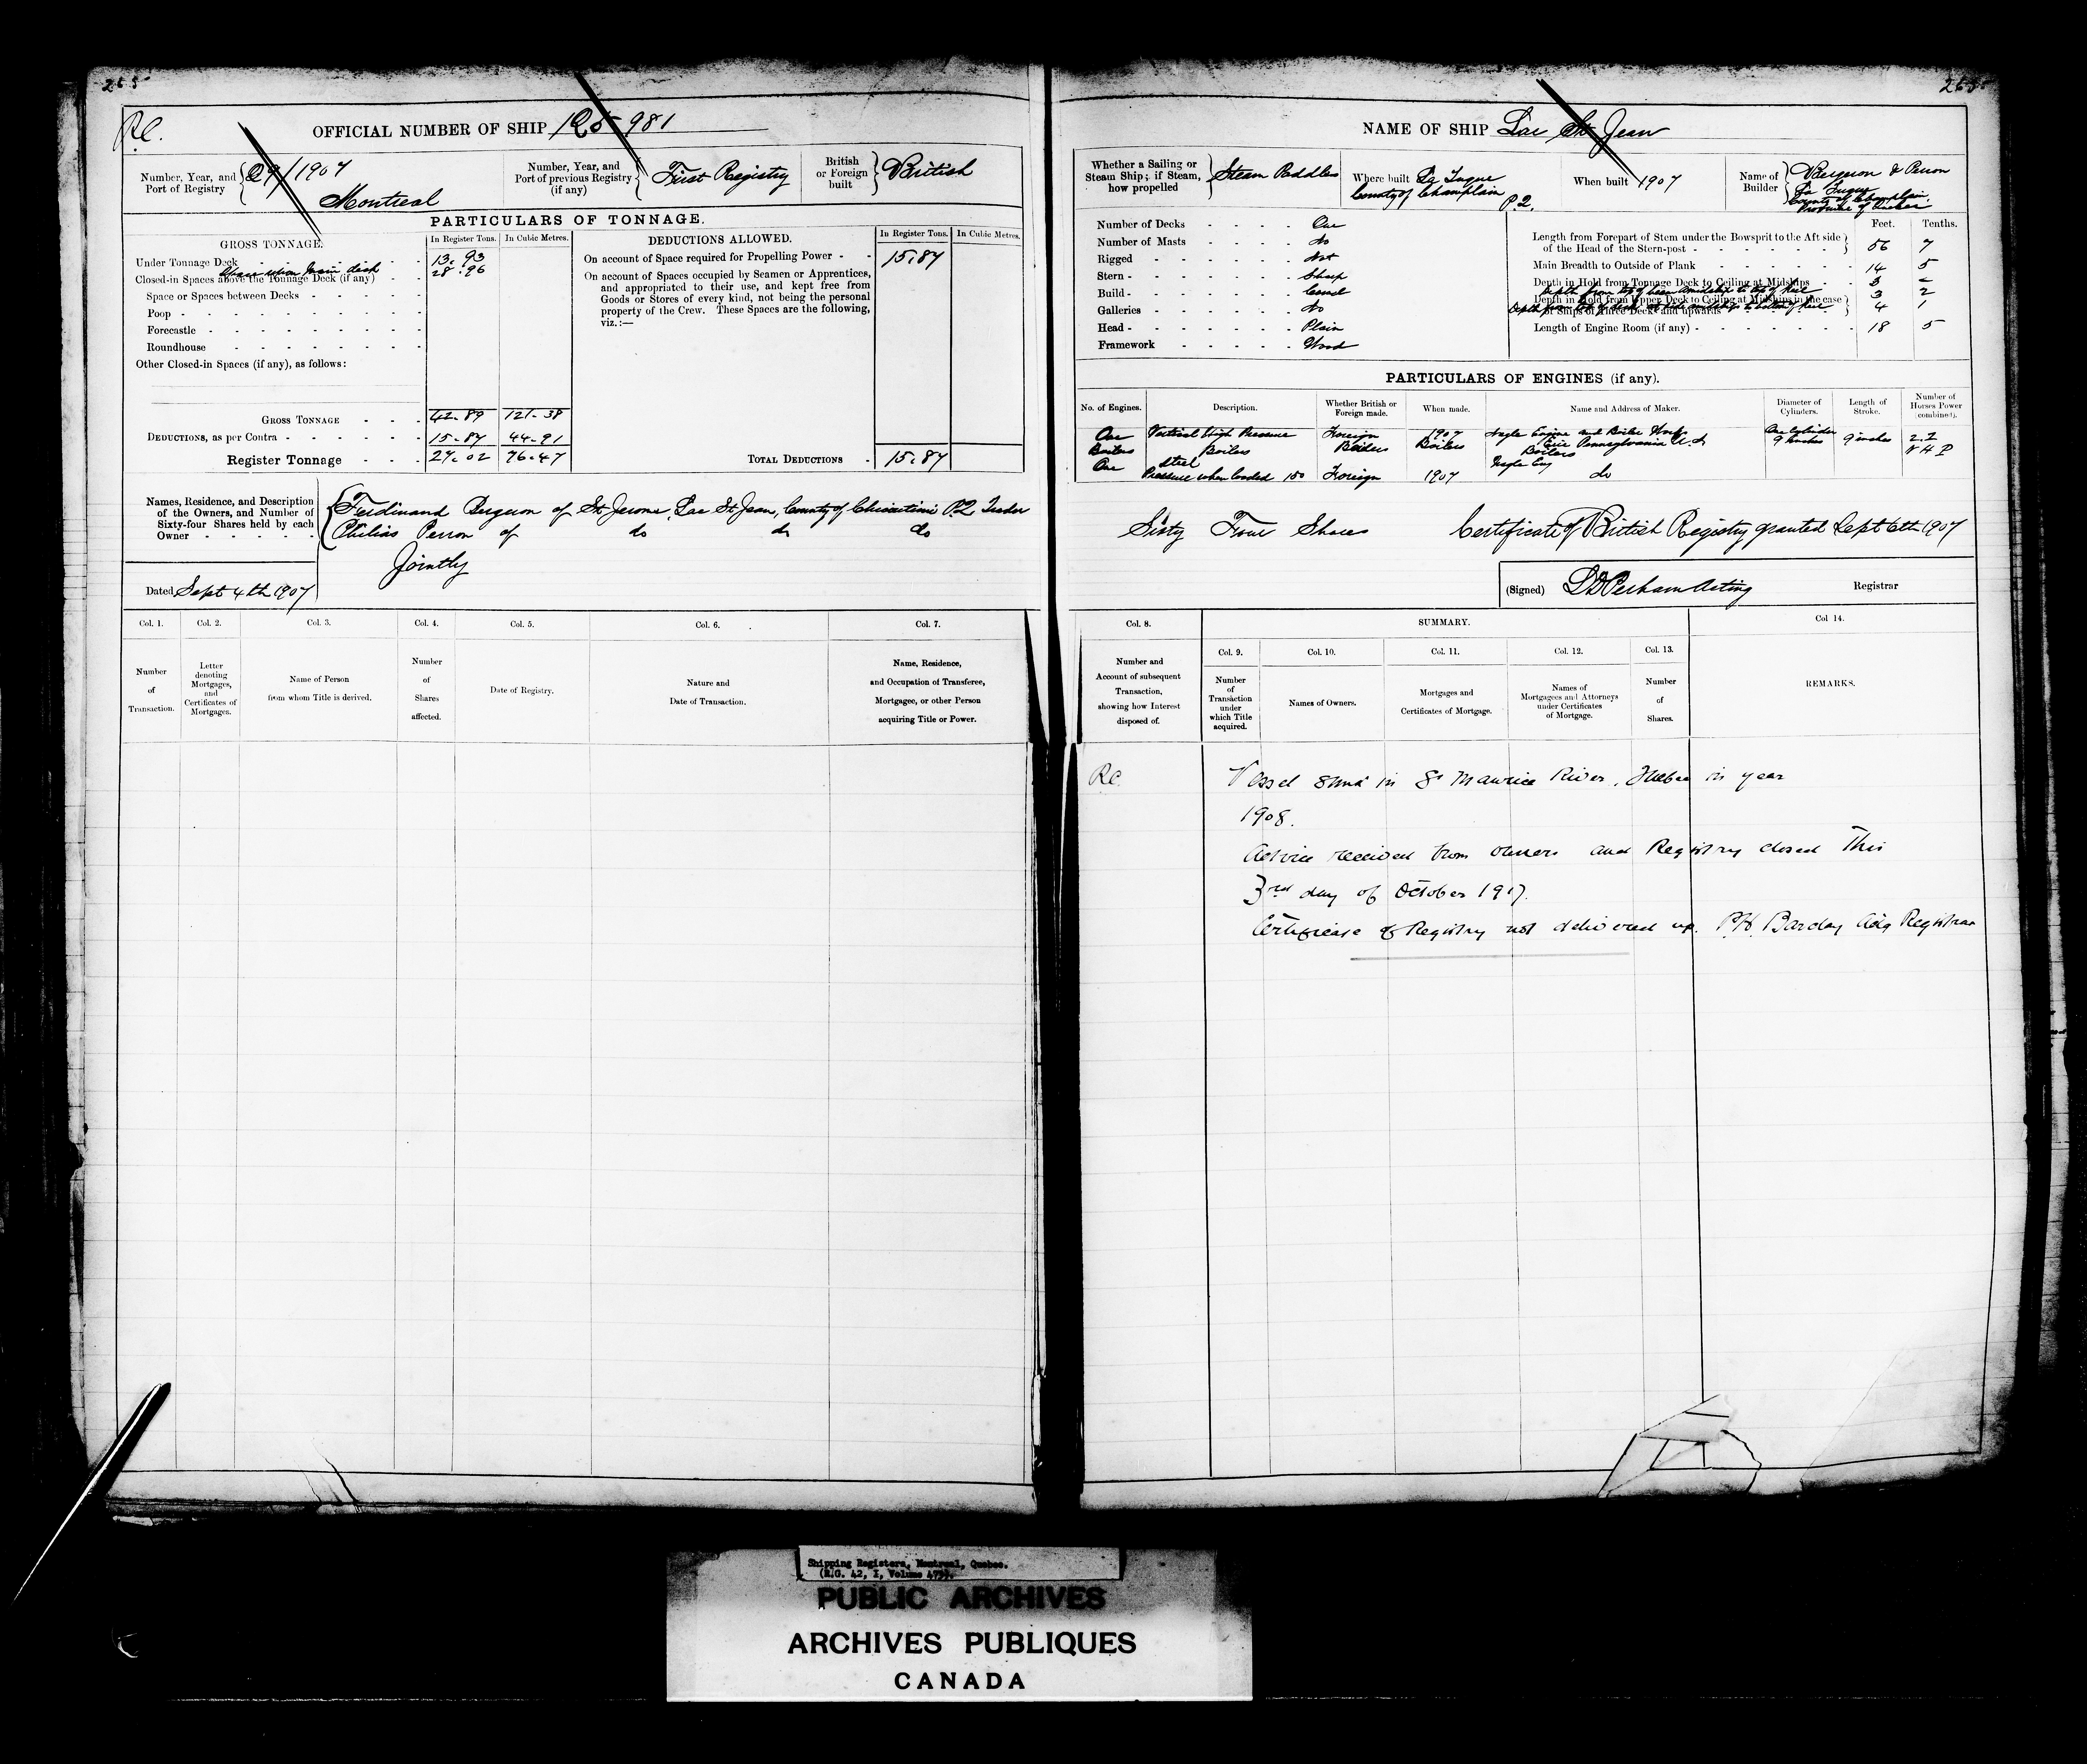 265
R.C.
OFFICIAL NUMBER OF SHIP 125981
Number, Year, and Port of Registry 29/1907 Montreal
Number, Year, and Port of previous Registry (if any) First Registry
British or Foreign built British
PARTICULARS OF TONNAGE.
GROSS TONNAGE.
In Register Tons. In Cubic Metres.
Under Tonnage Deck 13.93
Closed-in Spaces above the Tonnage Deck (if any) 28.96
Space or Spaces between Decks
Poop
Forecastle
Roundhouse
Other Closed-in Spaces (if any), as follows:
GROSS TONNAGE 42.89 121.38
DEDUCTIONS, as per Contra 15.87 44.91
Register Tonnage 27.02 76.47
DEDUCTIONS ALLOWED.
In Register Tons. In Cubic Metres.
On account of Space required for Propelling Power 15.87
On account of Spaces occupied by Seamen or Apprentices,
and appropriated to their use, and kept free from
Goods or Stores of every kind, not being the personal
property of the Crew. These Spaces are the following,
viz.:—
TOTAL DEDUCTIONS 15.87
Names, Residence, and Description
of the Owners, and Number of
Sixty-four Shares held by each
Owner
Ferdinand Bergeron of St Jerome, Lac St Jean, County of Chicoutimi P.Q.
Philias Perron of do do do
Jointly
Dated Sept 4th 1907
Col. 1. Col. 2. Col. 3. Col. 4. Col. 5. Col. 6. Col. 7.
Number of Transaction.
Letter denoting Mortgages, and Certificates of Mortgages.
Name of Person from whom Title is derived.
Number of Shares affected.
Date of Registry.
Nature and Date of Transaction.
Name, Residence, and Occupation of Transferee, Mortgagee, or other Person acquiring Title or Power.
265
NAME OF SHIP Lac St Jean
Whether a Sailing or Steam Ship; if Steam, how propelled Steam Paddles
Where built La Tuque County of Champlain P.Q.
When built 1907
Name of Builder Bergeron & Perron La Tuque County of Champlain Province of Quebec
Number of Decks One
Number of Masts No
Rigged Not
Stern Sharp
Build Carvel
Galleries No
Head Plain
Framework Wood
Feet. Tenths.
Length from Forepart of Stem under the Bowsprit to the Aft side of the Head of the Stern-post 56 7
Main Breadth to Outside of Plank 14 5
Depth in Hold from Tonnage Deck to Ceiling at Midships 3
Depth in Hold from Upper Deck to Ceiling at Midships in the case of Ships of Three Decks and upwards
3 2
4 1
Length of Engine Room (if any) 18 5
PARTICULARS OF ENGINES (if any).
No. of Engines. Description. Whether British or Foreign made. When made. Name and Address of Maker. Diameter of Cylinders. Length of Stroke. Number of Horses Power (combined).
One Vertical High Pressure Foreign 1907 Engine and Boiler Works Erie Pennsylvania One Cylinder 9 inches 9 inches
Boilers Boilers Boilers Boilers Boilers
One Steel Pressure when loaded 150 Foreign 1907 do
Sixty Four Shares Certificate of British Registry granted Sept 6th 1907
(Signed) Perham Acting Registrar
Col. 8. SUMMARY. Col 14.
Col. 9. Col. 10. Col. 11. Col. 12. Col. 13.
Number and Account of subsequent Transaction, showing how Interest disposed of.
Number of Transaction under which Title acquired.
Names of Owners.
Mortgages and Certificates of Mortgage.
Names of Mortgagees and Attorneys under Certificates of Mortgage.
Number of Shares.
REMARKS.
R.C. Vessel sunk in St Maurice River, Quebec in year
1908.
Advice received from owners and Registry closed This
3rd day of October 1917.
Certificate of Registry not delivered up. Barclay Registrar
Shipping Registers, Montreal, Quebec.
(R.G. 42, I, Volume
PUBLIC ARCHIVES
ARCHIVES PUBLIQUES
CANADA